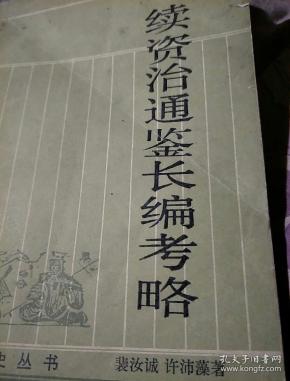 续资治通鉴长编考略
史丛书
裴汝诚 许沛藻著
孔夫子旧书网